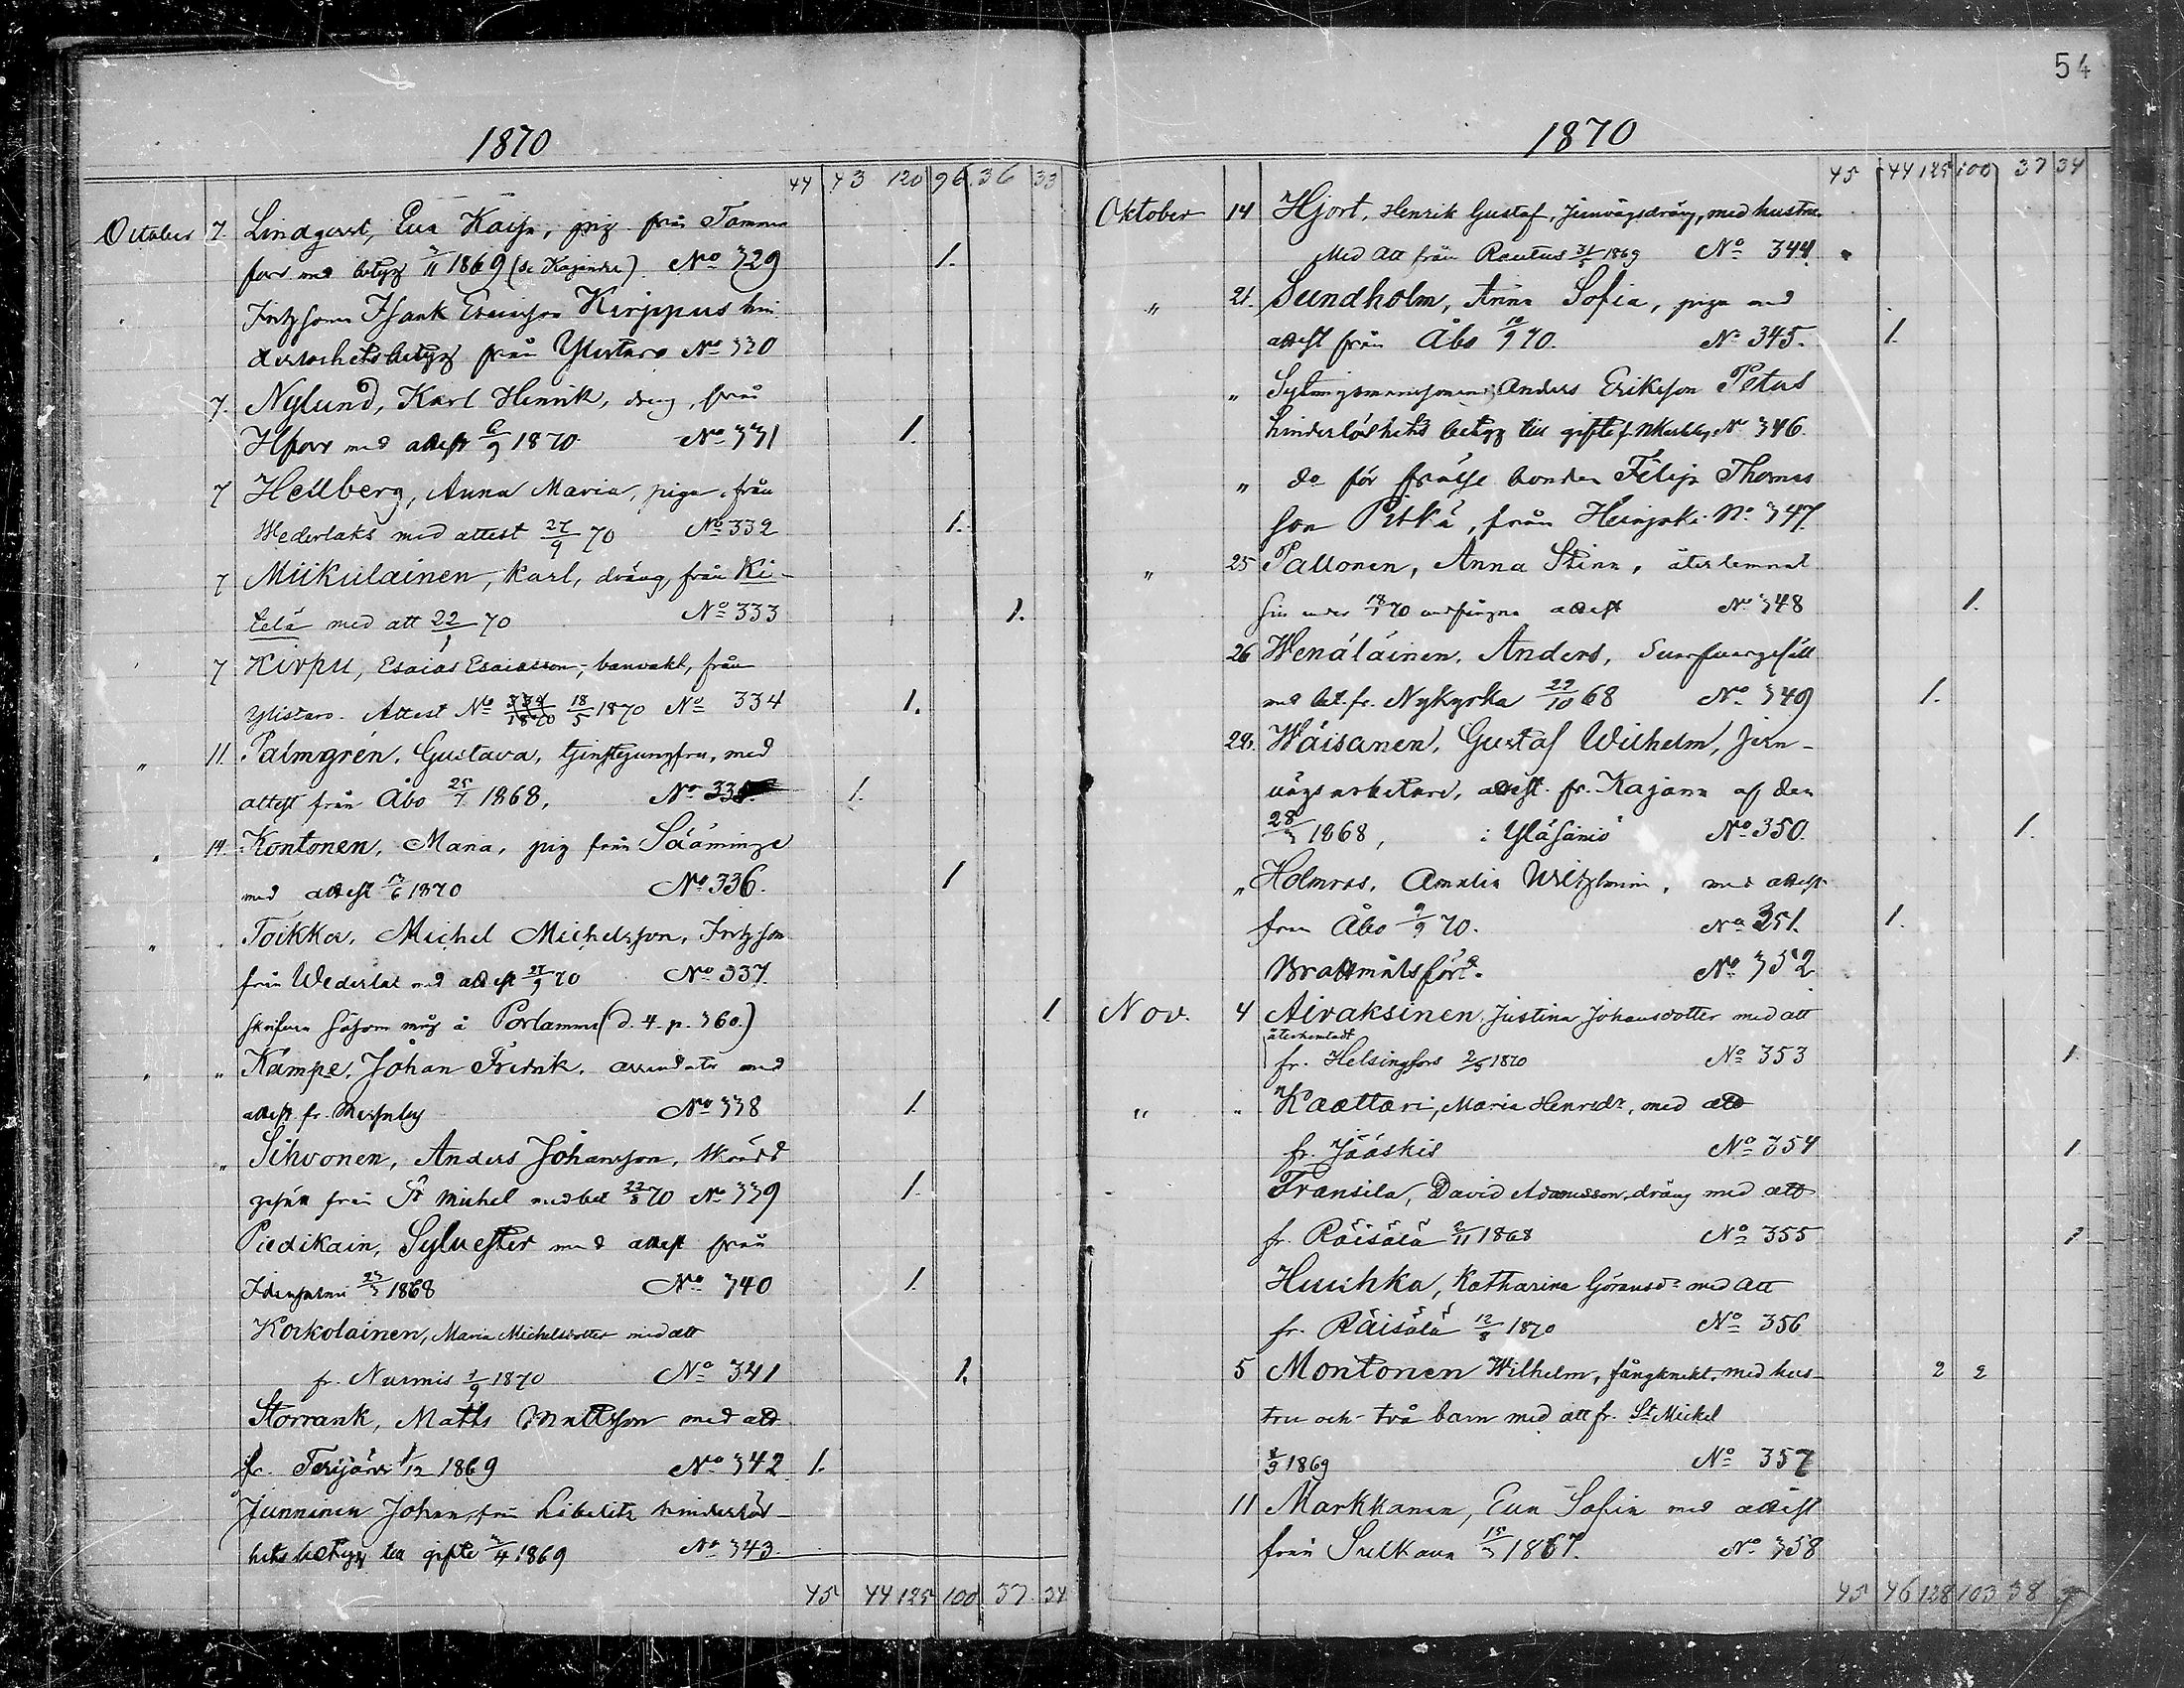 54
1870
44 43 120 96 36 33
October 7. Lindqvist, Eva Kajsa, pig från Tammer
fors med betyg 3/11 1869 (se Kajander) No 329 1.
Isaak Esaiasson Kirppus hin
derlöshetsbetyg från Ylistaro No 330
7. Nylund, Karl Henrik, dreng, från
Hfors med attest 6/9 1870 No 331 1.
7 Hellberg, Anna Maria, piga, från
Wederlaks med attest 27/9 70 No 332 1.
7 Miikulainen, Karl, dräng, från Ki-
telä med att 22/1 70 No 333 1.
7 Kirpu, Esaias Esaiasson, banvakt, från
Ylistaro. Attest No 18/5 1870 No 334 1.
" 11. Palmgrén, Gustava, tjenstejungfru, med
attest från Åbo 25/7 1868, No 335. 1.
" 14. Kontonen, Maria, pig från Sääminge
med attest 3/6 1870 No 336. 1
" Toikka, Michel Michelsson,
från Wederlax med attest 27/9 70 No 337.
såsom måg å Porlammi (d. 4. p. 360.) 1.
" " Kämpe, Johan Fredrik, arrendator med
attest fr. No 338 1.
" Sihvonen, Anders Johansson, Skrädd
gesäll från St Michel med bet 22/8 70 No 339 1.
Piedikain, Sylvester med attest från
Idensalmi 23/3 1868 No 340 1.
Korkolainen, Maria Michelsdotter med att
fr. Nurmis 4/9 1870 No 341 1.
Storrank, Maths Mattsson med att
fr. Terijärvi 1/12 1869 No 342 1.
Junninen Johan, från Libelitz hinderlös-
hets betyg till gifte 3/4 1869 No 343.
45 44 125 100 37 34
1870
45 44 125 100 37 34
Oktober 14 Hjort, Henrik Gustaf, Jernvägsdräng, med hustru
Med att från Rautus 31/5 1869 No 344.
" 21. Sundholm, Anna Sofia, piga med
attest från Åbo 10/9 70. No 345. 1.
" Anders Eriksson Petas
hinderlöshets betyg till gifte f. No 346.
" do för frälse bonden Filip Thomas
son Pitkä, från Heinjoki No 347
" 25 Pallonen, Anna Stina, återlemnat
sin under 18/1 70 undfångna attest No 348 1.
26 Wenäläinen, Anders, Svarfvargesäll
med bet. fr. Nykyrka 22/10 68 No 349 1.
28. Wäisänen, Gustaf Wilhelm, Jern-
vägsarbetare, attest. fr. Kajana af den
28/3 1868, i Yläsäniö No 350. 1.
" Holmros, Amalia Wilhelmina, med attest
från Åbo 9/9 70. No 351. 1.
Brottmålsför. No 352
Nov. 4 Airaksinen Justina Johansdotter med att
återhemtadt
fr. Helsingfors 2/5 1870 No 353 1
" " Kaattari, Maria Henrdr, med att
fr. Jääskis No 354 1
Fransila, David Adamsson, dräng med att
fr. Räisälä 2/11 1868 No 355 1
Huuhka, Katharina Göransdr med att
fr. Räisälä 12/8 1870 No 356
5 Montonen Wilhelm, fångknekt, med hus- 2 2
tru och två barn med att fr. St Michel
1869 No 357
11 Markkanen, Eva Sofia med attest
från Sulkava 15/3 1867. No 358
45 46 128 103 38